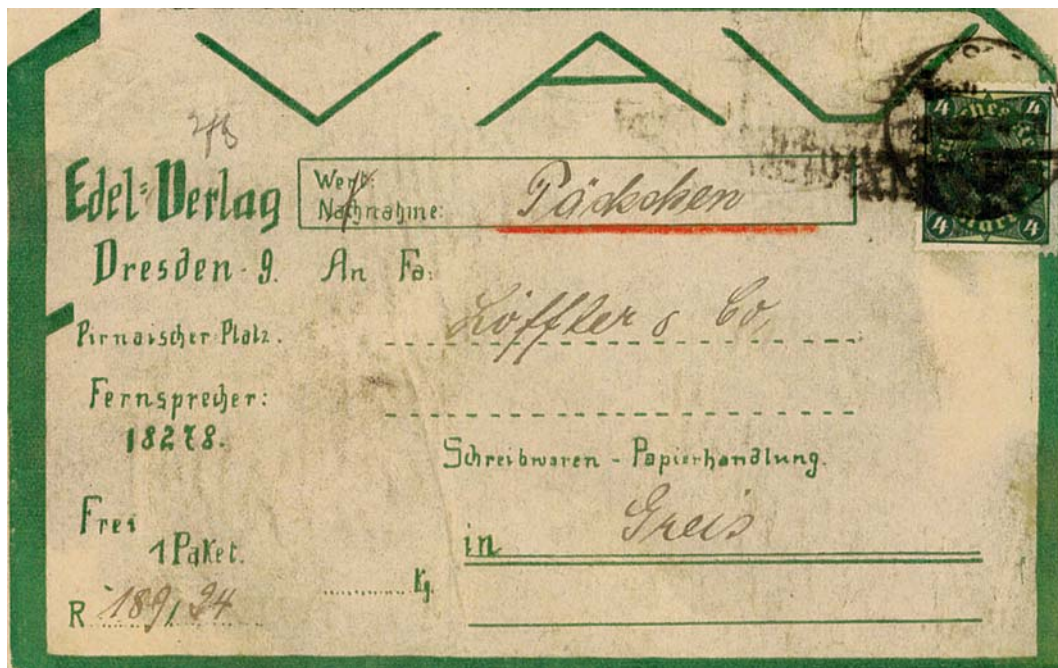 Edel=Verlag
Dresden - 9.
Pirnaischer Platz.
Fernsprecher:
18278.
Frei
1 Paket.
R 189/94
Wert:
Nachnahme: Päckchen
An Fa:
Löffler & Co.
Schreibwaren - Papierhandlung.
in Greiz
Kg.
4 4
4 4